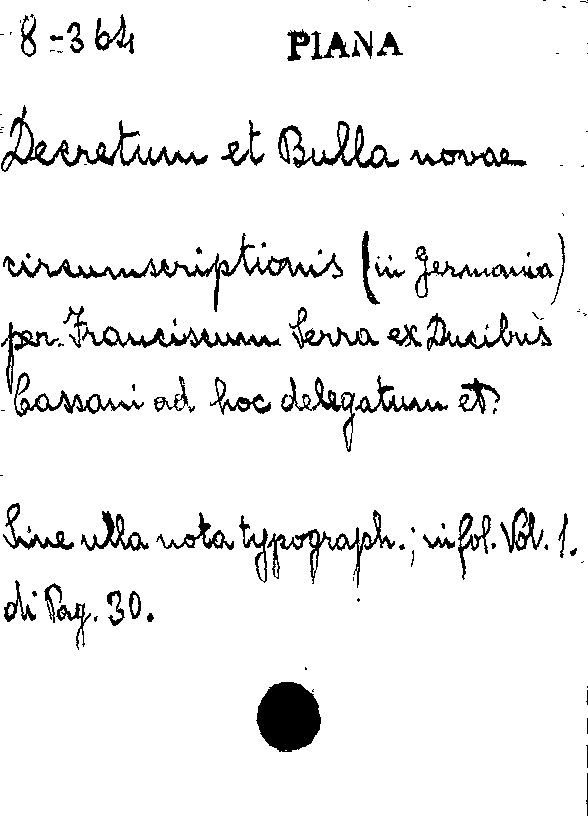 8-364 PIANA
Decretum et Bulla novae
circumscriptionis (in Germania)
per Franciscum Serra ex Ducibus
Cassani ad hoc delegatum et.
Sine ulla nota typograph.; in fol. Vol. 1.
di Pag. 30.